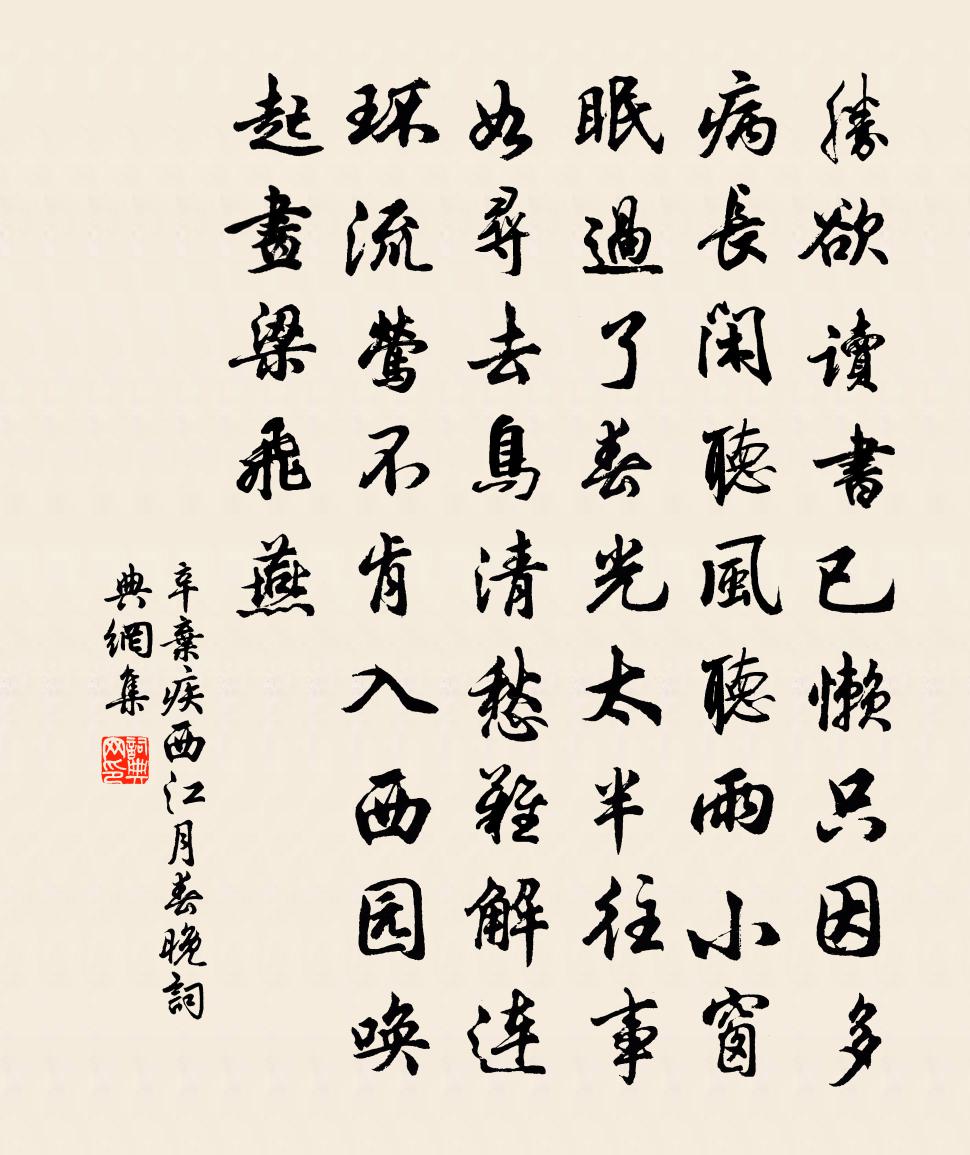 勝欲讀書已懶只因多
病長閑聽風聽雨小窗
眠過了春光太半往事
如尋去鳥清愁難解連
环流鶯不肯入西园唤
起畫梁飛燕
辛棄疾西江月春晚詞
典網集
詞典
网印